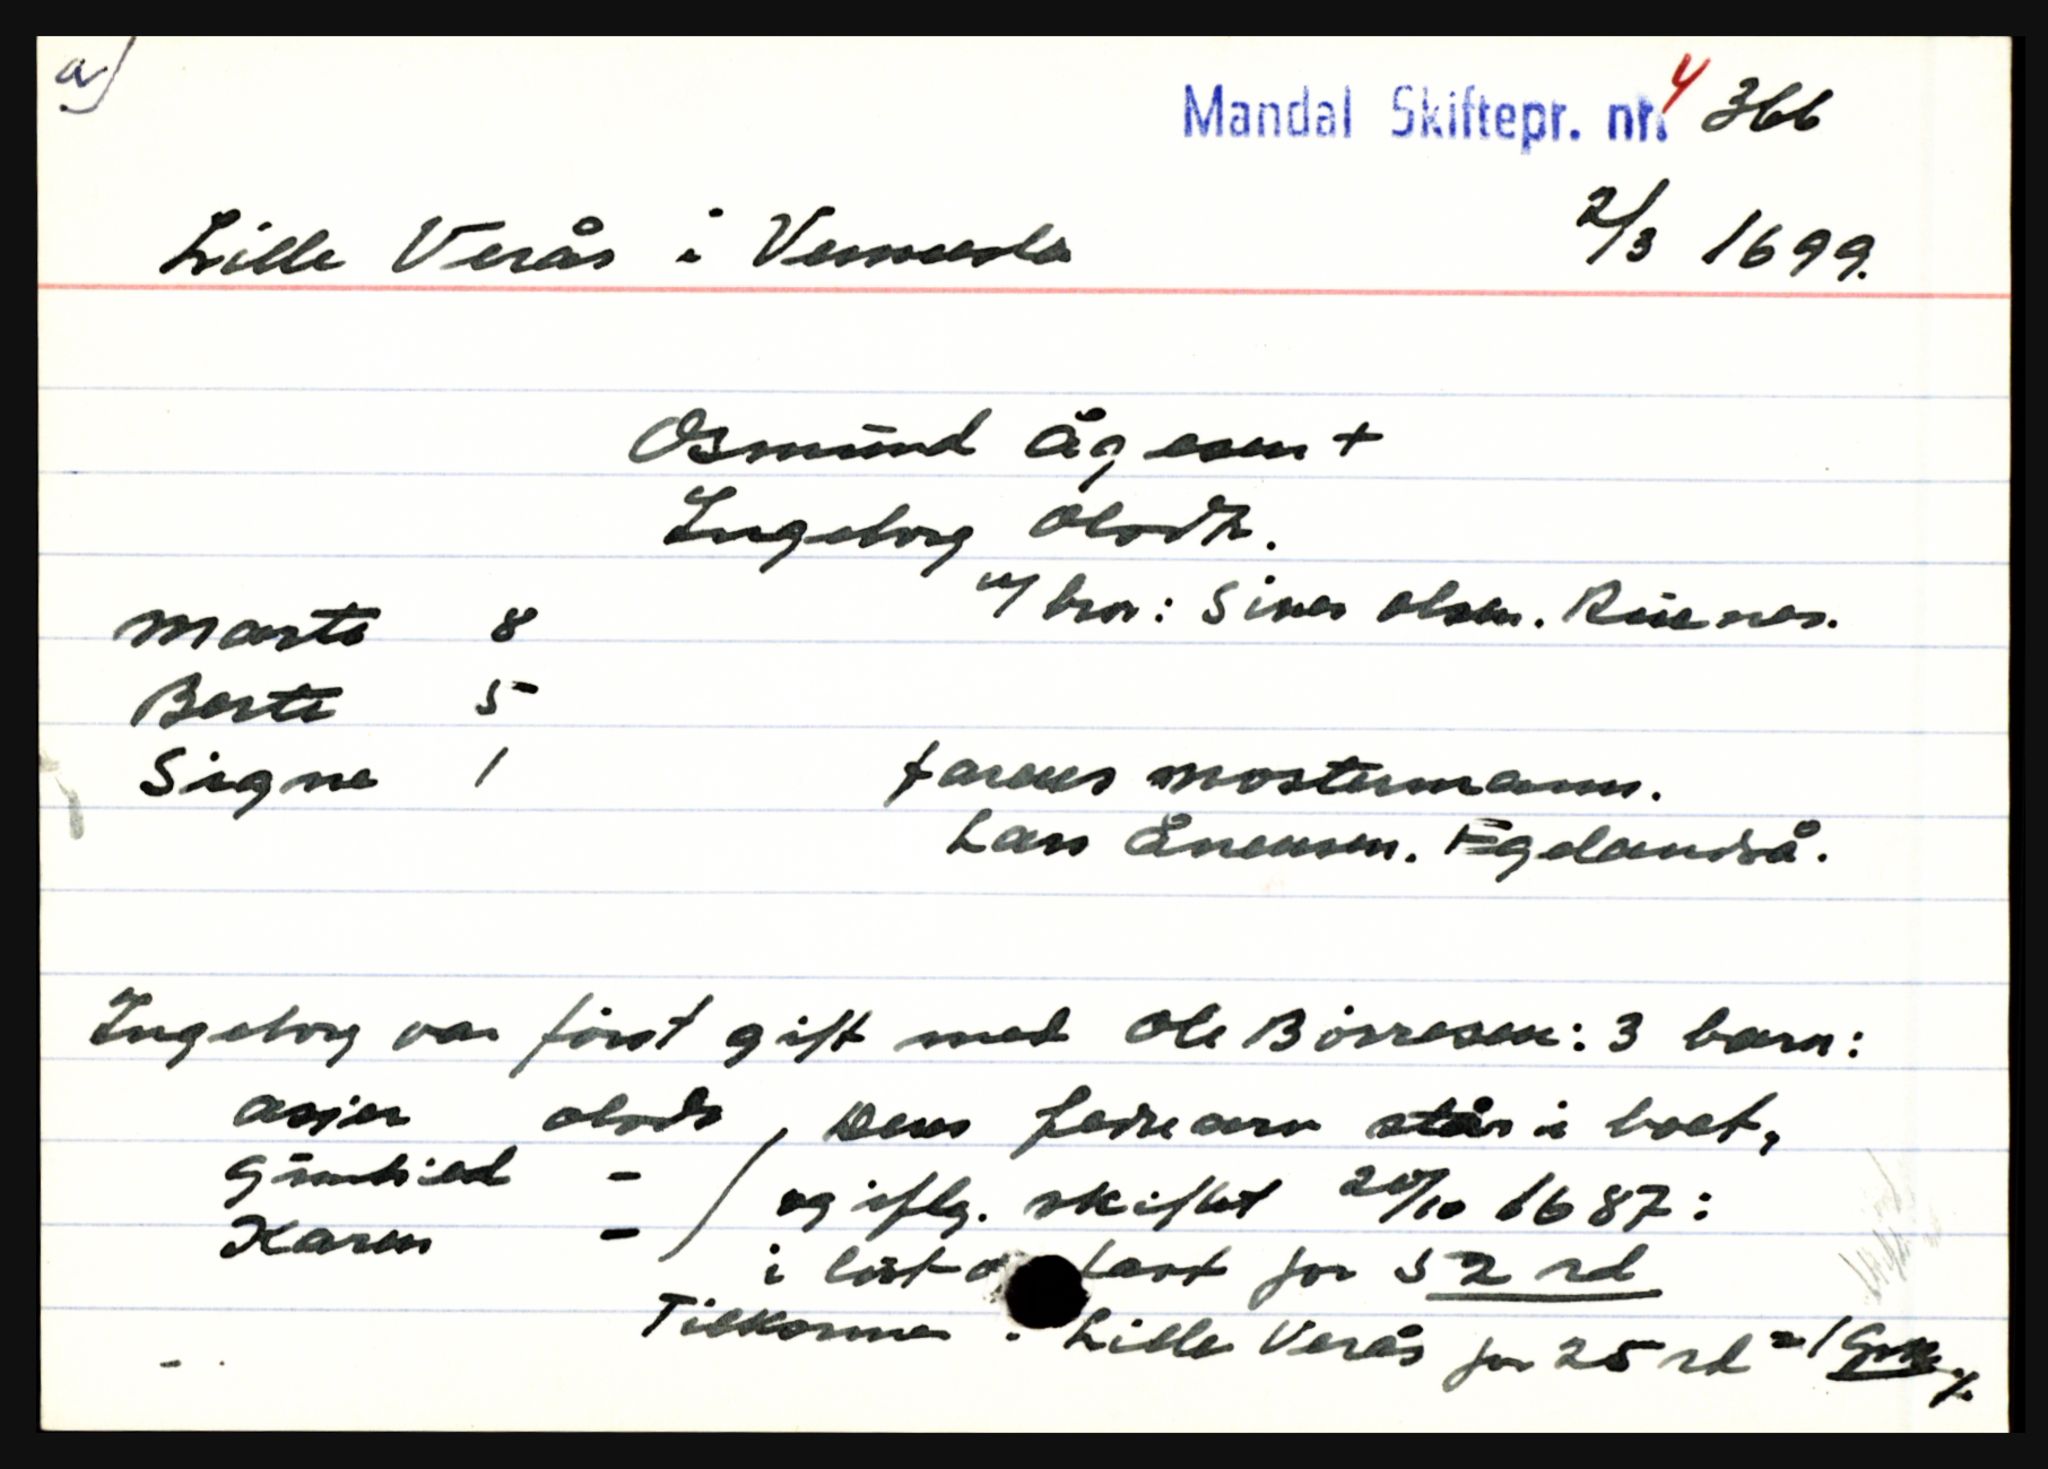 a)
Mandal Skiftepr. nr. 4 366
Lille Verås i Vennesla 2/3 1699.
Osmund Ågesen +
Ingeborg Olvdtr.
m/ bror: Siver Olsen. Ruenes.
Marte 8
Berte 5
Signe 1
farens mostermann.
Lars Ånensen. Egelandså.
Ingeborg var først gift med Ole Børresen: 3 barn:
Asjer Olvds Deres fedrearv står i boet,
Gunhild -
og iflg. skiftet 20/10 1687:
Karen -
i løst o fast for 52 rd
Tilkommer . Lille Verås for 25 rd = 1